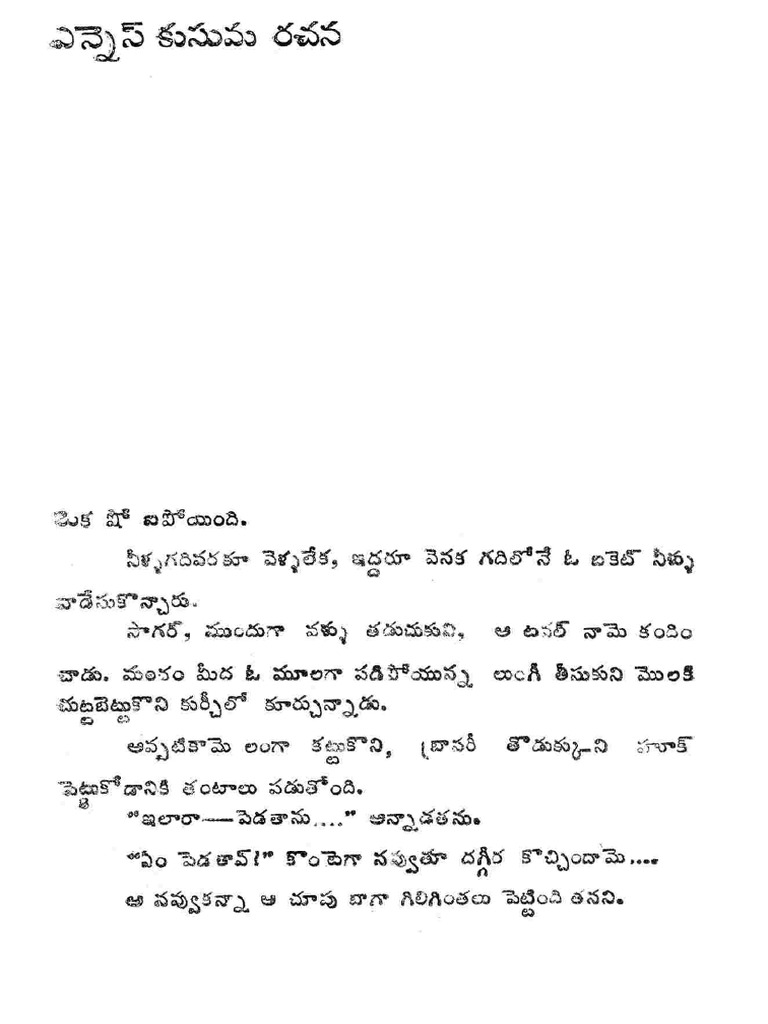 ఎన్నెస్ కుసుమ రచన
ఒక షో ఐపోయింది.
నీళ్ళగదివరకూ వెళ్ళలేక, ఇద్దరూ వెనక గదిలోనే ఓ బకెట్ నీళ్ళు
వాడేసుకొన్నారు.
సాగర్, ముందుగా వళ్ళు తడుచుకుని, ఆ టవల్ నామె కందిం
చాడు. మంచం మీద ఓ మూలగా పడిపోయున్న లుంగీ తీసుకుని మొలకి
చుట్టబెట్టుకొని కుర్చీలో కూర్చున్నాడు.
అప్పటికామె లంగా కట్టుకొని, బ్రాసరీ తొడుక్కుని హుక్
పెట్టుకోడానికి తంటాలు పడుతోంది.
"ఇలారా—పెడతాను...." అన్నాడతను.
"ఏం పెడతావ్!" కొంటెగా నవ్వుతూ దగ్గిర కొచ్చిందామె....
ఆ నవ్వుకన్నా ఆ చూపు బాగా గిలిగింతలు పెట్టింది తనని.